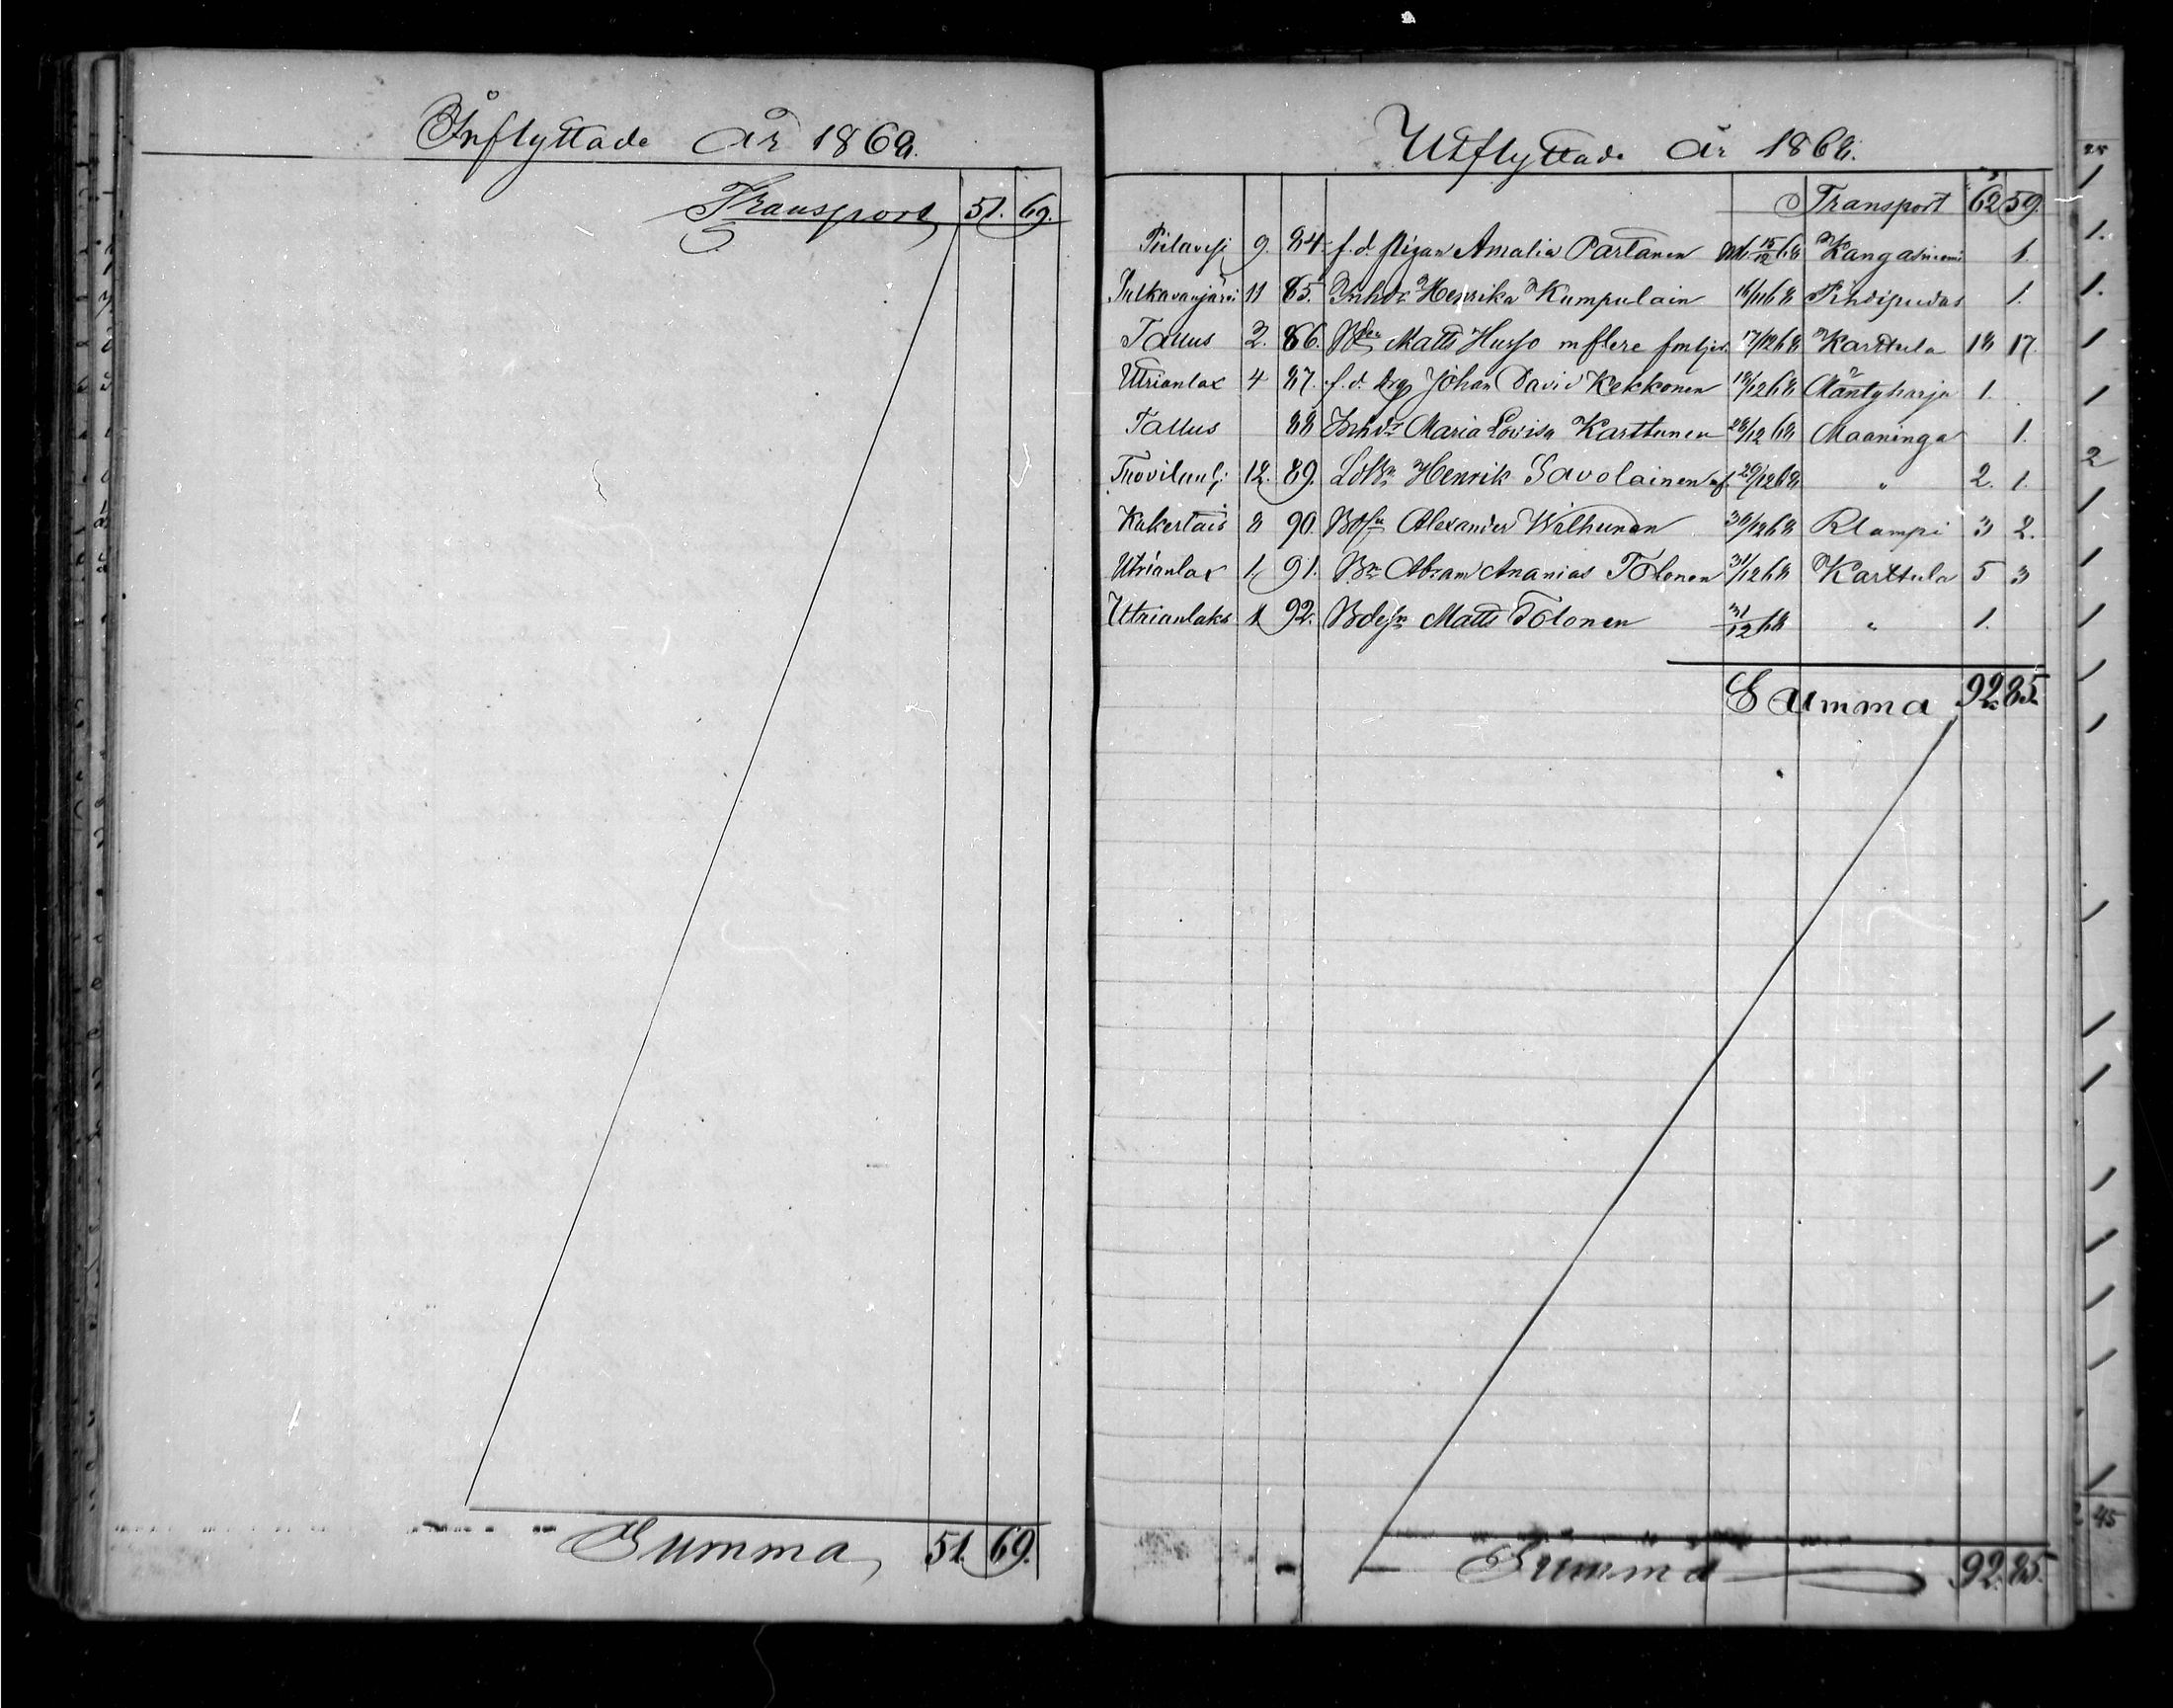 Inflyttade År 1868.
Transport 51. 69.
Summa 51. 69.
Utflyttade År 1868.
Transport 62 59.
Pielavesi 9. 84. f. d. pigan Amalia Partanen 15/12 68 Kangasniemi 1.
Pulkavanjärvi 11 85. Inhdr Henrika Kumpulain 16/11 68 Pihdipudas 1.
Tallus 2. 86. Matts Husso m flere 17/12 68 Karttula 18 17.
Utrianlax 4 87. f. d. drg Johan David Kekkonen 18/12 68 Mäntyharju 1.
Tallus 88 Inhds Maria Lovisa Karttunen 28/12 68 Maaninga 1.
12. 89. Henrik Savolainen 29/12 68 " 2. 1.
8 90. Alexander Wilhunen 30/12 68 Rlampi 3 2.
Utrianlax 1. 91. Bn Abram Ananias Tolonen 31/12 68 Karttula 5 3
Utrianlaks 1 92. Matts Tolonen 31/12 68 " 1.
Summa 92. 85.
Summa 92. 85.
25
1
1.
1.
1
1
2
1
1
1
1
1
45